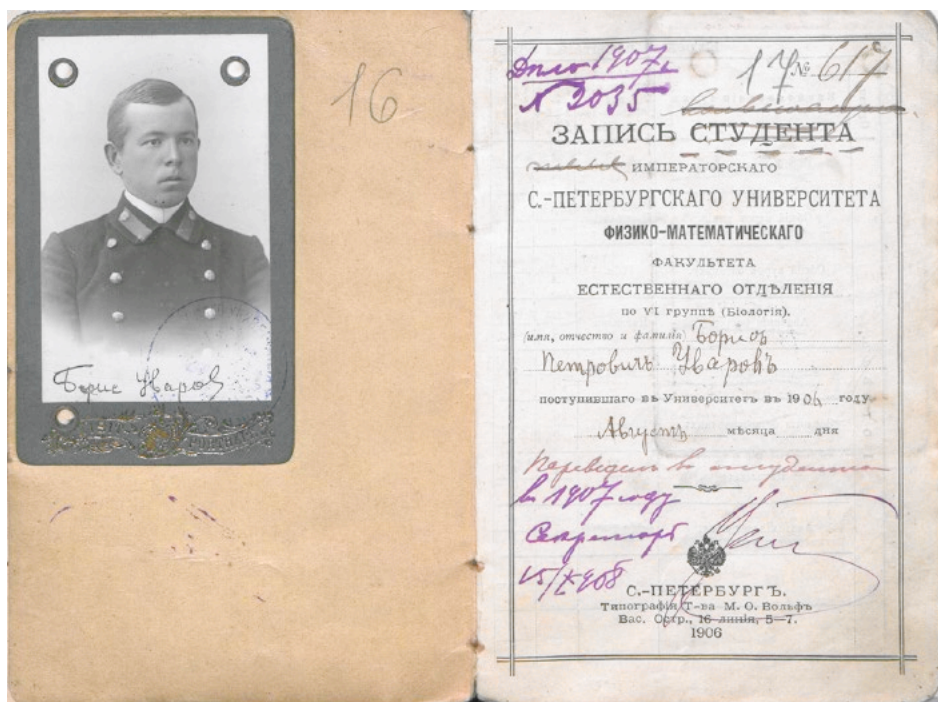 16
Борис Уваров
Дѣло 1907 г.
№ 2035
17 № 617
ЗАПИСЬ СТУДЕНТА
ИМПЕРАТОРСКАГО
С.-ПЕТЕРБУРГСКАГО УНИВЕРСИТЕТА
ФИЗИКО-МАТЕМАТИЧЕСКАГО
ФАКУЛЬТЕТА
ЕСТЕСТВЕННАГО ОТДѢЛЕНІЯ
по VI группѣ (Біологія).
(имя, отчество и фамилія) Борисъ
Петровичъ Уваровъ
поступившаго въ Университетъ въ 1906 году
Августъ мѣсяца дня
Переведенъ в студенты
в 1907 году
Секретарь
С.-ПЕТЕРБУРГЪ.
Типографія Т-ва М. О. Вольфъ
Вас. Остр., 16 линія, 5—7.
1906